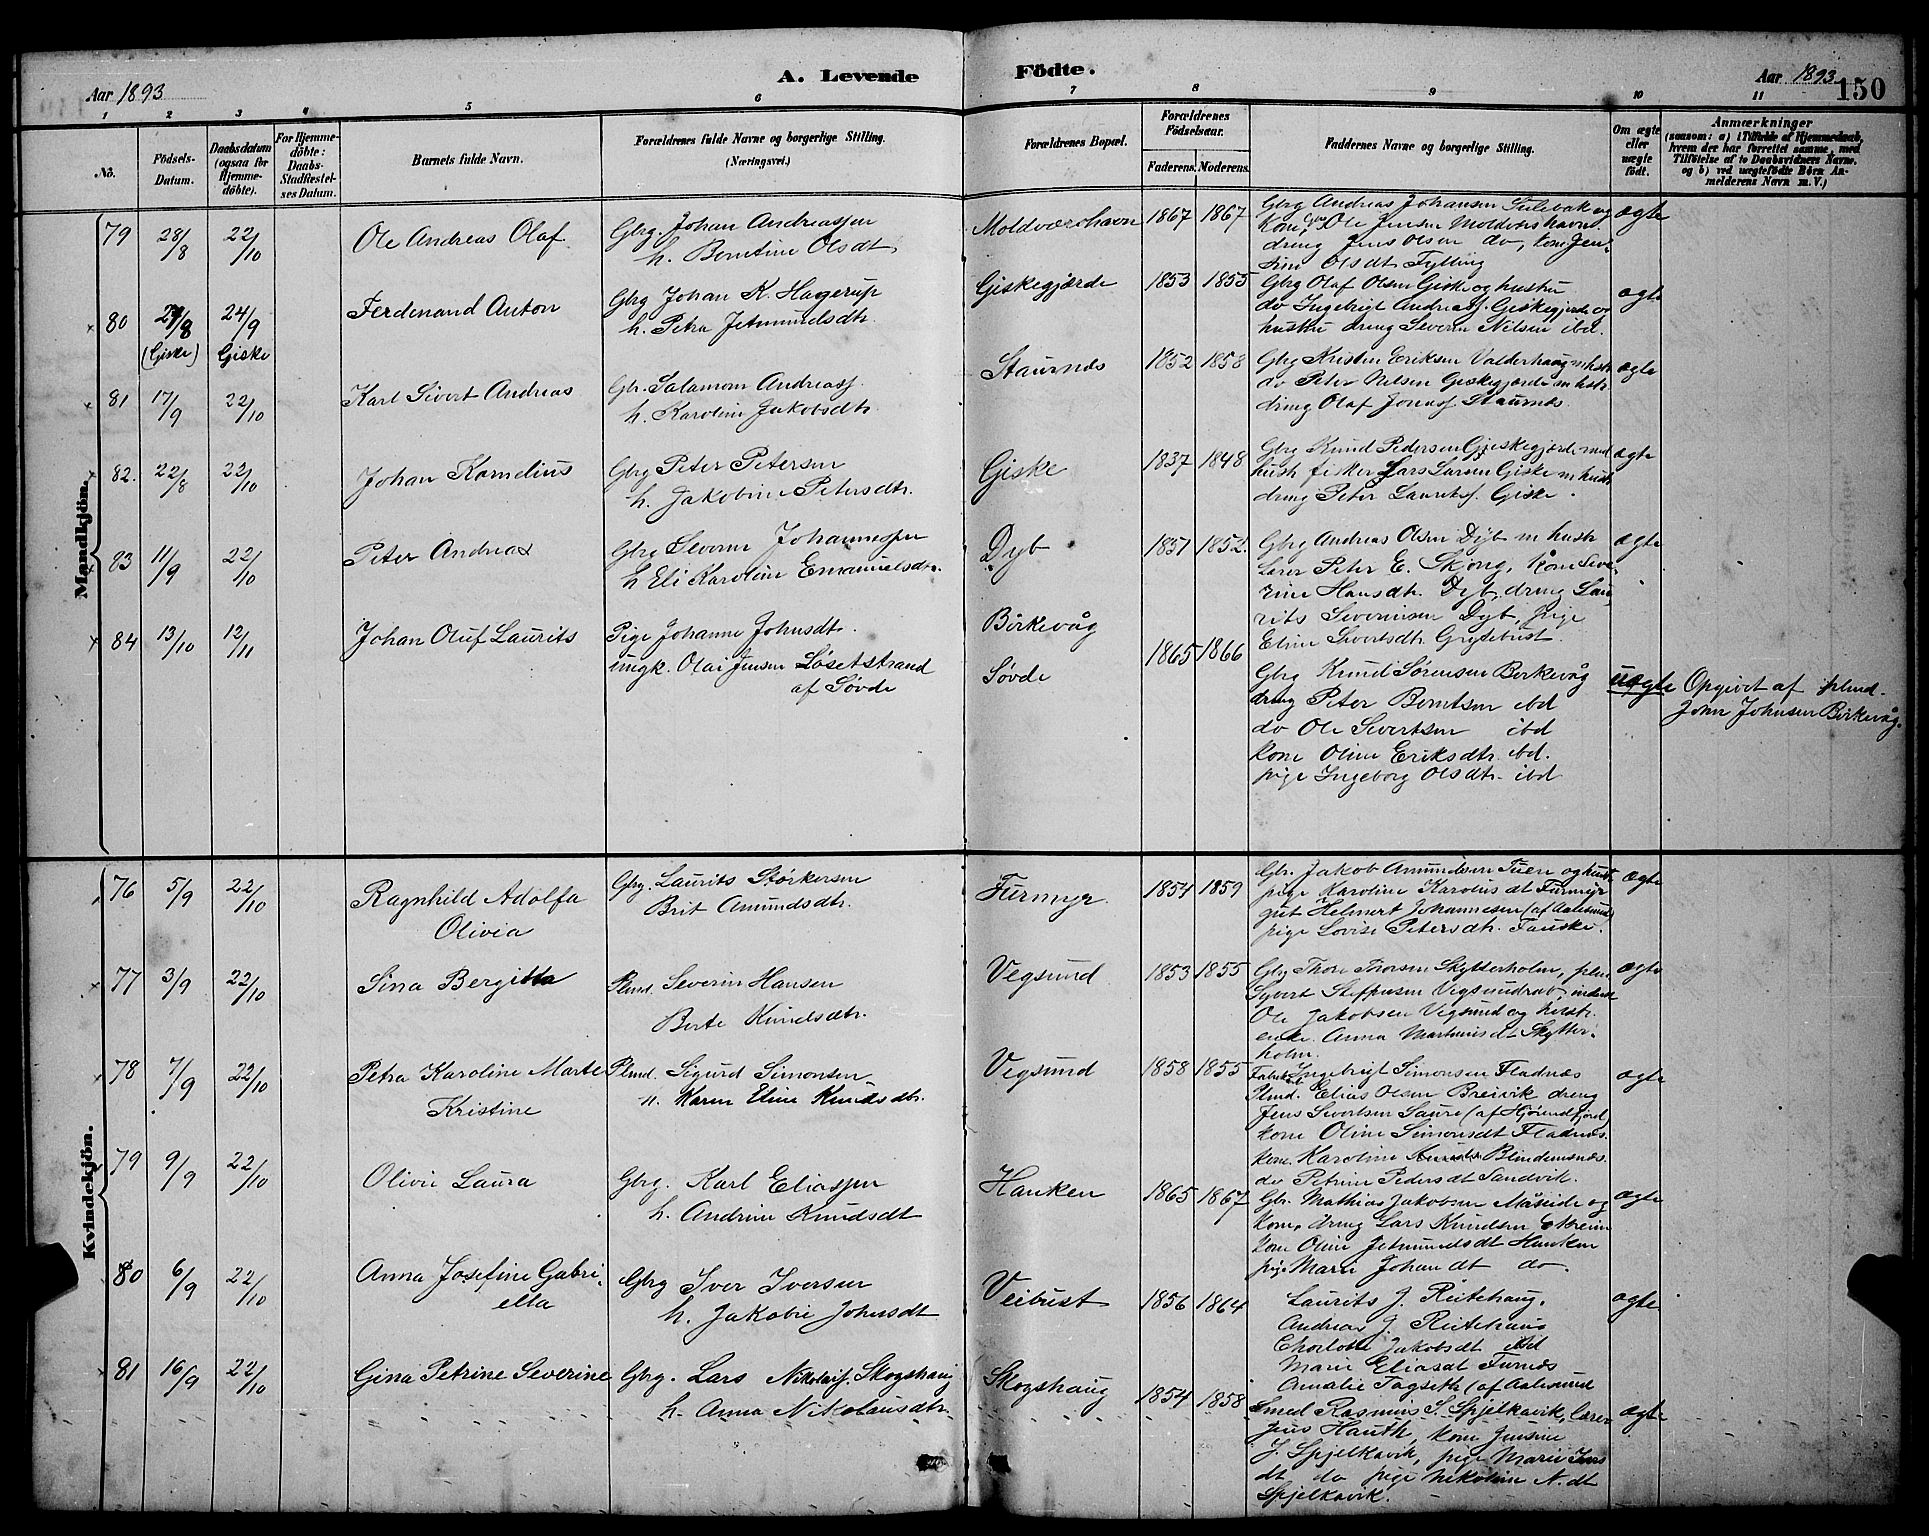 A. Levende Födte.
Aar 1893
Aar 1893
150
1 2 3 4 5 6 7 8 9 10 11
No.
Födsels-Datum.
Daabsdatum (ogsaa for Hjemmedöbte).
For Hjemmedöbte: Daabs-Stadfæstelses Datum.
Barnets fulde Navn.
Forældrenes fulde Navne og borgerlige Stilling. (Næringsvei.)
Forældrenes Bopæl.
Forældrenes Födselsaar.
Faderens. Moderens.
Faddernes Navne og borgerlige Stilling.
Om ægte eller uægte födt.
Anmærkninger
(saasom: a) i Tilfælde af Hjemmedaab, hvem der har forrettet samme, med Tilföielse af to Daabsvidners Navne. og b) ved uægtefödte Börn Anmelderens Navn m. V.)
Mandkjön.
79 28/8 22/10 Ole Andreas Olaf
Gbrg. Johan Andreassen
h. Berntine Olsdt.
Moldværshavn 1867 1867
Gbrg Andreas Johansen Tulebak og
kone, Gbr Ole Jensen Moldværshavn
dreng Jens Olsen do, kone Jen-
sine Olsdt. Fylling
ægte
80 29/8 24/9 Ferdenand Anton
(Giske) Giske
Gbrg Johan K. Hagerup
h. Petra Jetmundsdtr.
Giskegjærde 1853 1855
Gbrg Olaf Olsen Giske og hustru
do Ingebrigt Andreass. Giskegjerde og
hustru dreng Severin Nilsen ibd.
ægte
81 17/9 22/10 Karl Sivert Andreas
Gbr. Salamon Andreass.
h. Karoline Jakobsdtr.
Staurnes 1852 1858
Gbrg Kristen Eriksen Valderhaug m hust
do Peter Nilsen Giskegjerde m hust
dreng Olaf Jonass. Staurnes.
ægte
82. 22/8 22/10 Johan Kornelius
Gbrg Peter Petersen
h. Jakobine Petersdtr.
Giske 1837 1848
Gbrg Knud Pedersen Gjeskegjerde med
hust fisker Lars Larsen Giske m hust
dreng Peter Laurits. Giske.
ægte
83 11/9 22/10 Peter Andreas
Gbrg Severin Johannessen
h Eli Karoline Emanuelsdtr.
Dyb 1851 1852.
Gbrg Andreas Olsen Dyb m hustr
Lærer Peter E. Skong, kone Seve-
rine Hansdtr. Dyb, dreng Lau-
rits Severinsen Dyb, pige
Eline Sivertsdtr Grytebust.
ægte
84 13/10 12/11 Johan Oluf Laurits
Pige Johanne Johnsdt.
ungk. Olai Jensen Løsetstrand
af Søvde
Birkevåg
Søvde
1865 1866
Gbrg Knud Sørensen Birkevåg
dreng Peter Berntsen ibd
do Ole Sivertsen ibd
kone Oline Eriksdtr. ibd.
pige Ingeborg Olsdtr. ibd
uægte Opgivet af plmd.
John Johnsen Birkevåg.
Kvindekjön.
76 5/9 22/10 Ragnhild Adolfa
Olivia
Gbrg. Laurits Størkersen
Brit Amundsdtr.
Furmyr. 1854 1859
Gbr. Jakob Amundsen Tuen og hust.
pige Karoline Karolusdt Furmyr
gut Helmert Johannesen (af Aalesund)
pige Lovise Petersdtr. Fauske.
ægte
77 3/9 22/10 Sina Bergitta
Plmd. Severin Hansen
Berte Knudsdtr.
Vegsund 1853 1855
Gbrg Thore Thorsen Skytterholm, plm
Syvert Steffensen Vegsundrab, inderst
Ole Jakobsen Vegsund og hustr.
enke Anna Martinusdt Skytter-
holm.
ægte
78 7/9 22/10 Petra Karoline Marte
Kristine
Plmd. Sigurd Simonsen
h. Maren Eline Knudsdtr.
Vegsund 1858 1855
Ingebrigt Simonsen Fladnæs
Plmd. Elias Olsen Breivik dreng
Jens Sivertsen Saure (af Hjørendfjord)
kone Oline Simonsdt Fladnæs.
kone Karoline Blindemsnæs.
do Petrine Pedersdt Sandvik.
ægte
79 9/9 22/10 Olivie Laura
Gbrg. Karl Eliassen
h. Andrine Knudsdt
Hanken 1865 1867
Gbr. Mathias Jakobsen Måseide og
kone, dreng Lars Knudsen Akreim
kone Oline Jetmundsdt Hanken
pige Marie Johandt do.
ægte
80 6/9 22/10 Anna Josefine Gabri-
ella
Gbrg Iver Iversen
h. Jakobie Johnsdt
Veibust 1856 1864
Laurits J. Reitehaug,
Andreas J. Reitehaug
Charlotte Jakobsdt ibd
Marie Eliasdt Furnes
Amalie Tagseth (af Aalesund
ægte
81 16/9 22/10 Gina Petrine Severine
Gbrg. Lars Nikolaif. Skogshaug
h. Anna Nikolausdtr.
Skogshaug 1854 1858
Smed Rasmus S. Spjelkavik, lærer
Jens Hauth, kone Jensine
J. Spjelkavik, pige Marie Jens
dt do pige Nikoline N.dt
Spjelkavik.
ægte